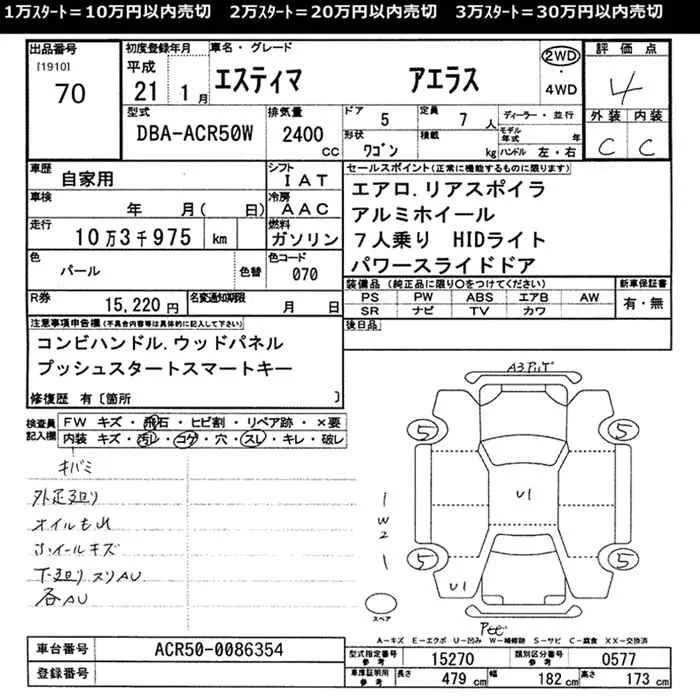 1万ｽﾀｰﾄ＝10万円以内売切　2万ｽﾀｰﾄ＝20万円以内売切　3万ｽﾀｰﾄ＝30万円以内売切
出品番号
[1910]
70
初度登録年月
平成
21 1月
車名・グレード
エスティマ アエラス
2WD
・
4WD
評価点
4
外装 内装
C C
型式
DBA-ACR50W
排気量
2400 cc
ドア 5
定員 7人
形状 ワゴン
積載 kg
ディーラー・並行
モデル年式 年
ハンドル 左・右
車歴 自家用
シフト IAT
車検 年 月( 日)
冷房 AAC
走行 10万3千975 km
燃料 ガソリン
色 パール
色替
色コード 070
R券 15,220円
名変通知期限 月 日
セールスポイント(正常に機能するものに限ります)
エアロ.リアスポイラ
アルミホイール
7人乗り HIDライト
パワースライドドア
装備品 (純正品に限り〇をつけてください)
PS PW ABS エアB AW
SR ナビ TV カワ
新車保証書
有・無
後日品
注意事項申告欄(不具合内容等は具体的に記入して下さい)
コンビハンドル.ウッドパネル
プッシュスタートスマートキー
修復歴 有〔箇所 〕
検査員記入欄
FW キズ・飛石・ヒビ割・リペア跡・×要
内装 キズ・汚レ・コゲ・穴・スレ・キレ・破レ
キバミ
外足廻り
オイルもれ
ホイールキズ
下廻りスリAU
各AU
5 5
U1
1
W2
1
5 5
U1
スペア
A-キズ E-エクボ U-凹み W-補修跡 S-サビ C-腐食 XX-交換済
車台番号 ACR50-0086354
登録番号
型式指定番号 参考 15270
類別区分番号 参考 0577
車庫証明用 参考
長さ 479 cm
幅 182 cm
高さ 173 cm